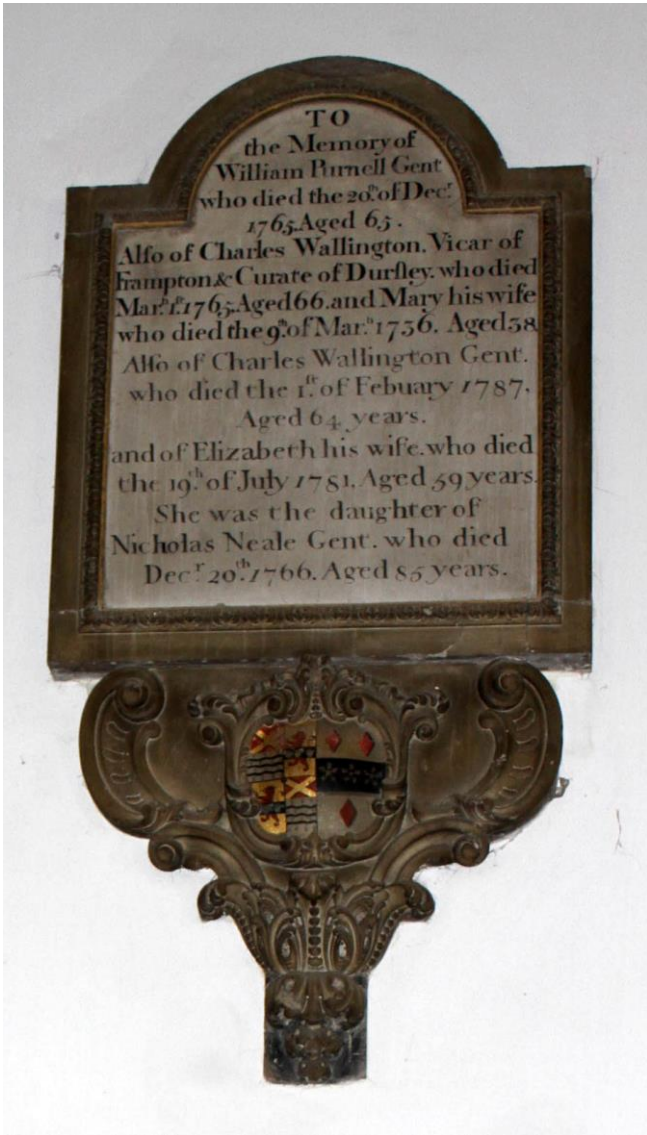 TO
the Memory of
William Purnell Gent
who died the 20th. of Decr.
1765. Aged 65.
Alſo of Charles Wallington. Vicar of
Frampton & Curate of Durſley. who died
Marh. 1ſt. 1765. Aged 66. and Mary his wife
who died the 9th. of Marh. 1736. Aged 38
Alſo of Charles Wallington Gent.
who died the 1ſt. of Febuary 1787.
Aged 64 years.
and of Elizabeth his wife. who died
the 19th. of July 1781. Aged 59 years.
She was the daughter of
Nicholas Neale Gent. who died
Decr. 20th. 1766. Aged 85 years.